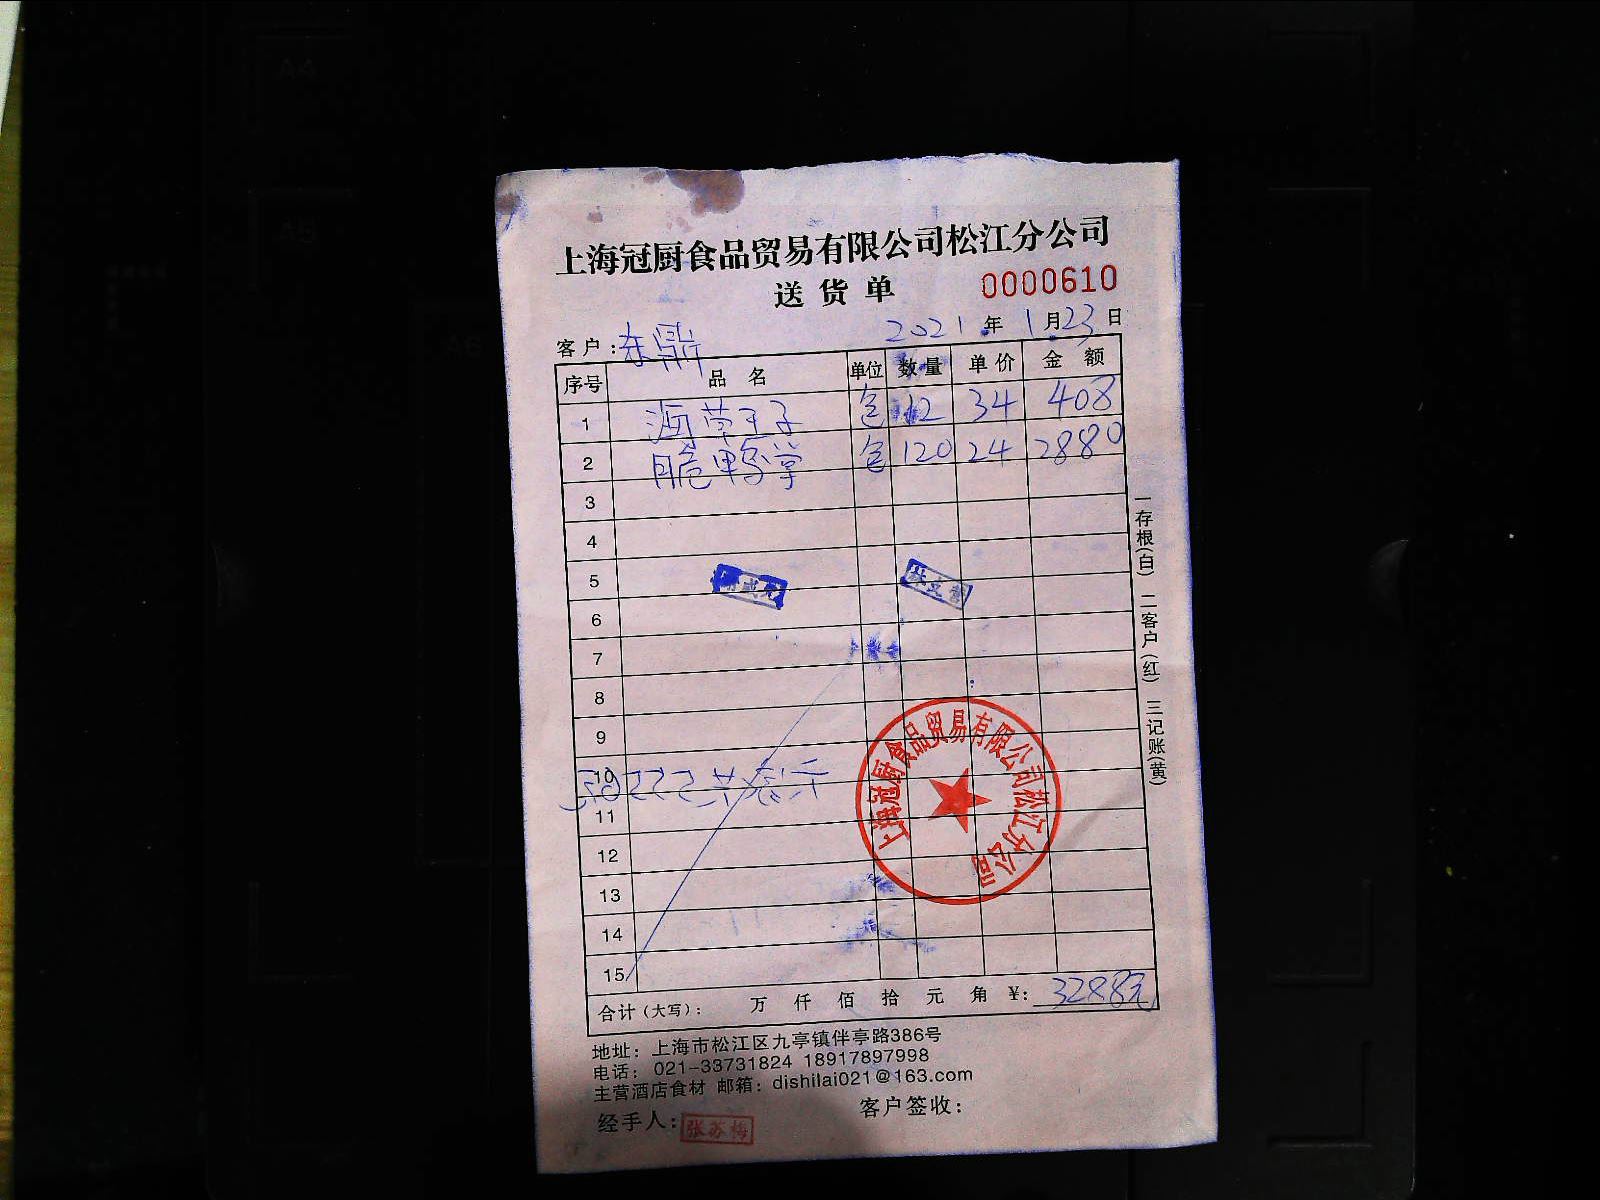 上海冠厨食品贸易有限公司松江分公司
送货单 0000610
客户：东鼎 2021年1月23日
序号 品名 单位 数量 单价 金额
1 海草王子 包 12 34 408
2 脆鸭掌 包 120 24 2880
3
4
5
6
7
8
9
10
11
12
13
14
15
合计（大写）： 万 仟 佰 拾 元 角 ¥：3288元
地址：上海市松江区九亭镇伴亭路386号
电话：021-33731824 18917897998
主营酒店食材 邮箱：dishilai021@163.com
经手人：张苏梅 客户签收：
一存根（白） 二客户（红） 三记账（黄）
上海冠厨食品贸易有限公司松江分公司